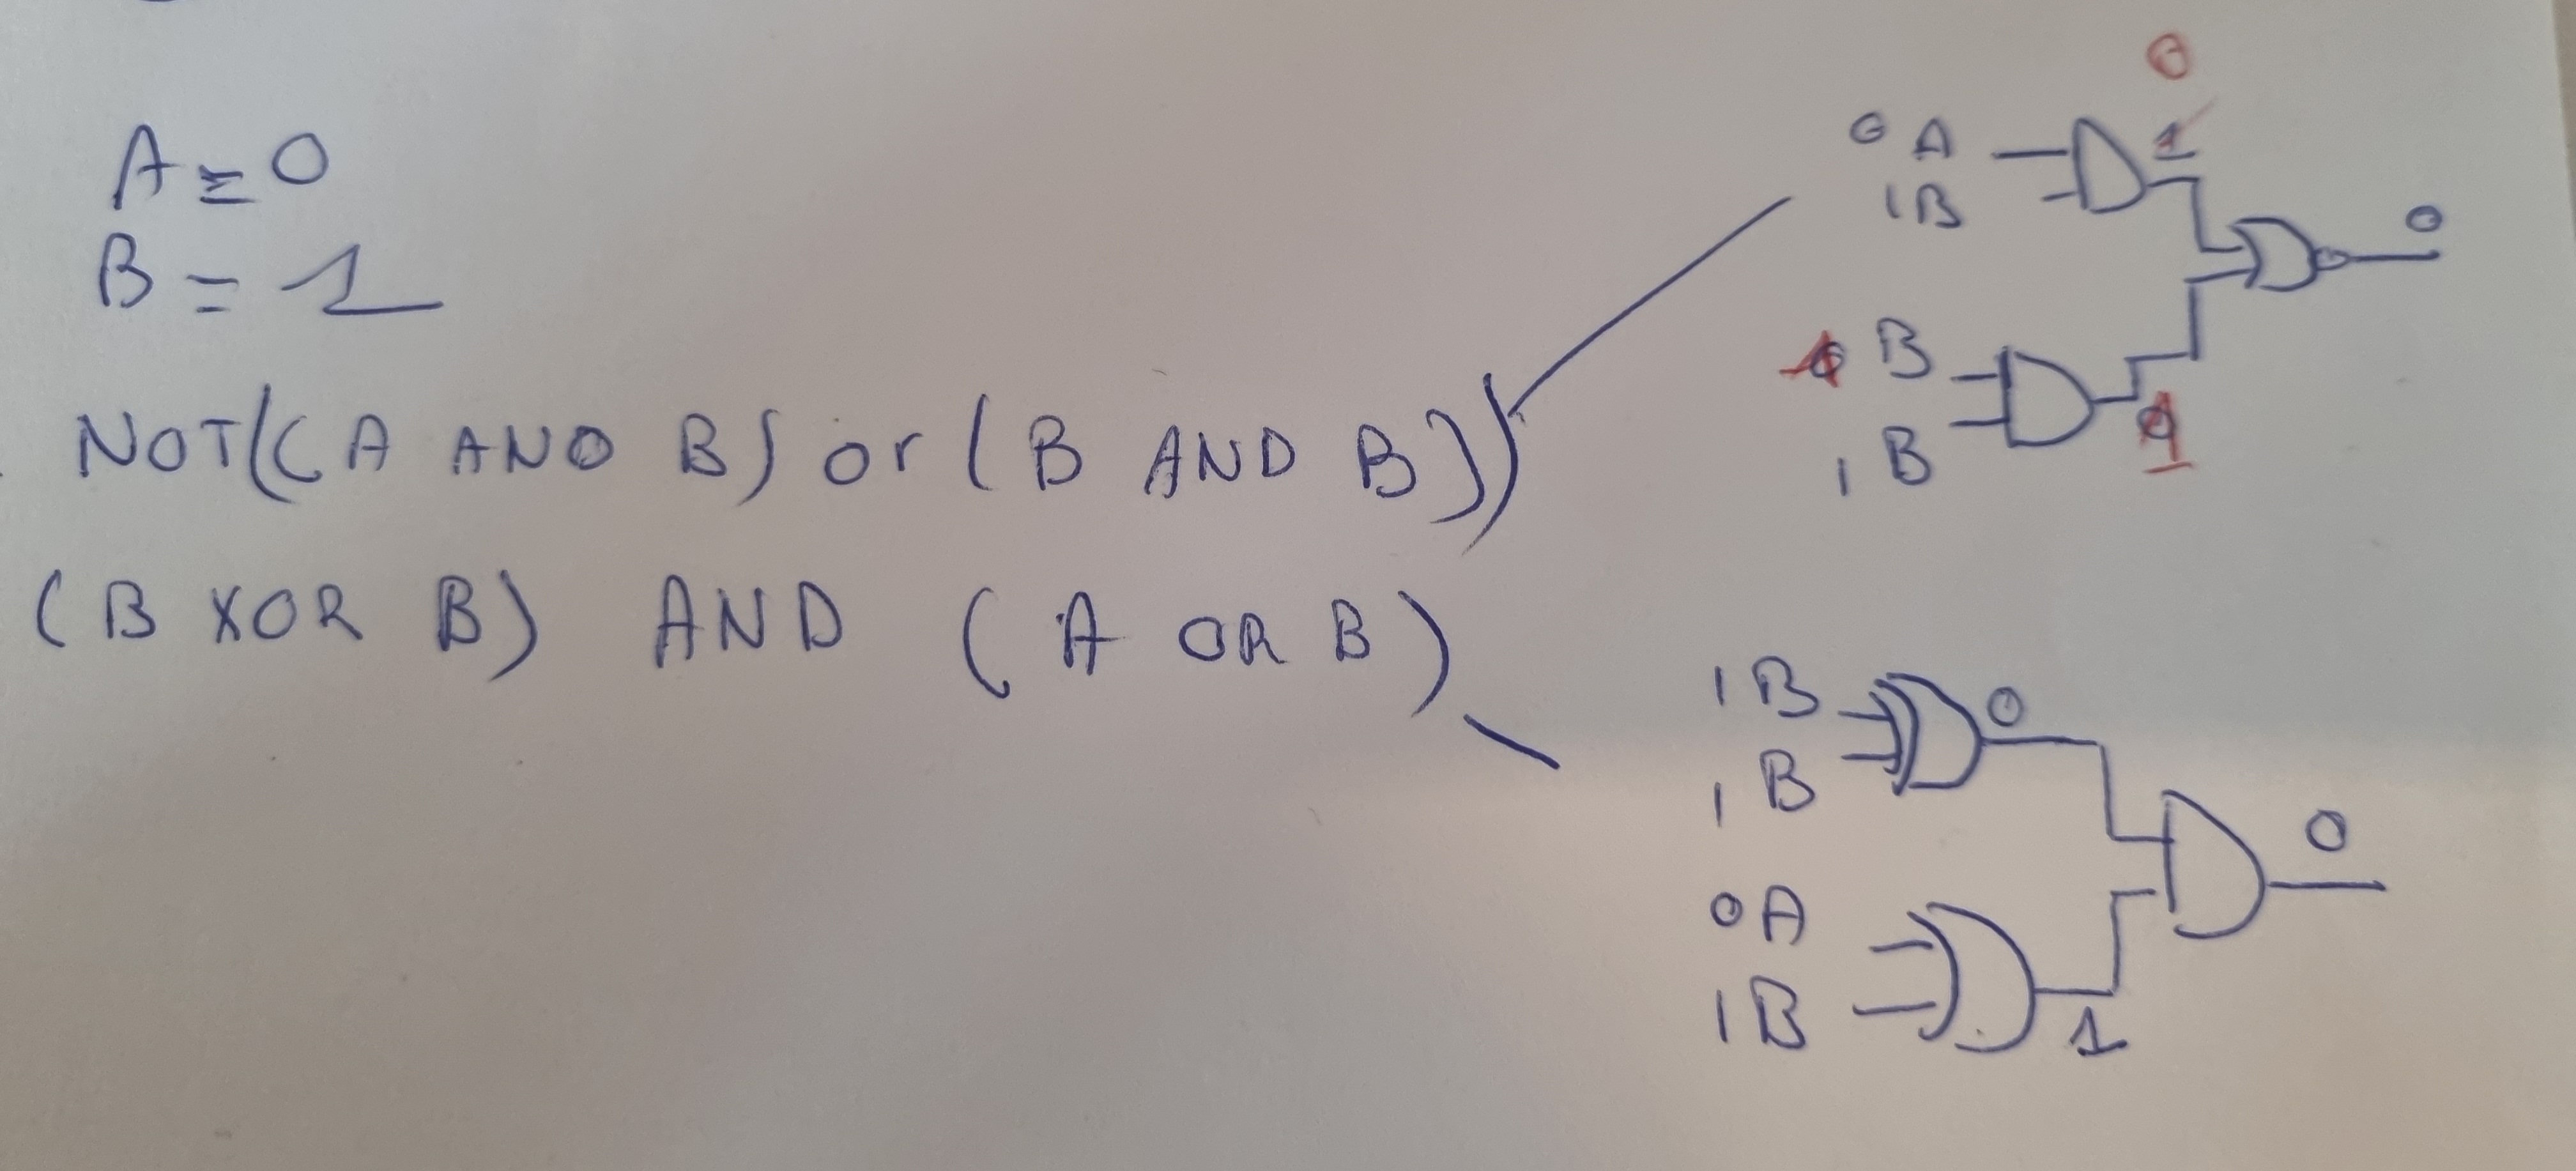 A = 0
B = 1
NOT((A AND B) or (B AND B))
(B XOR B) AND (A OR B)
0 A
1 B
0
1
0
B
1 B
1
1 B
1 B
0
0 A
1 B
1
0